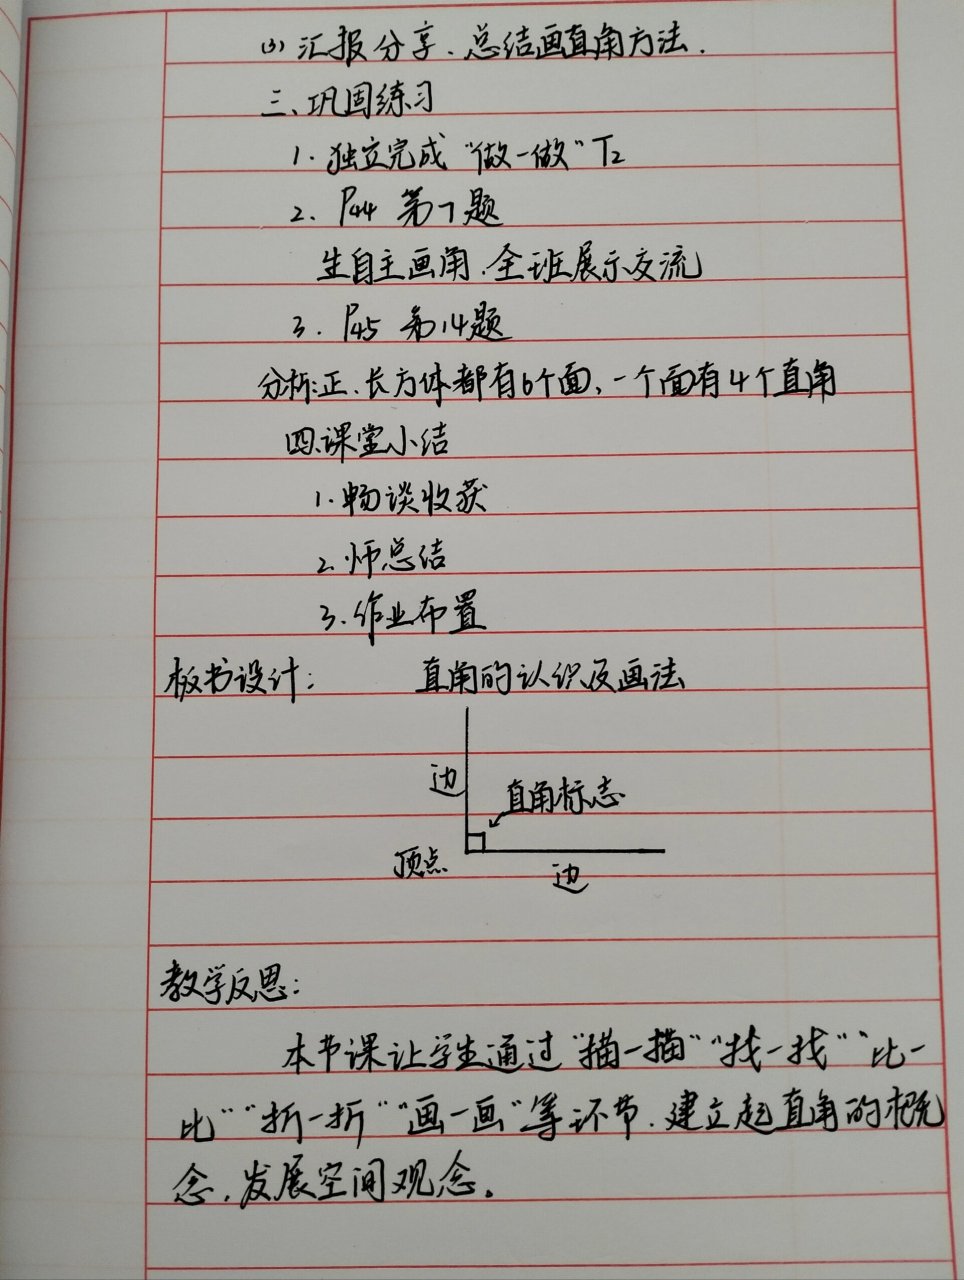 (3) 汇报分享、总结画直角方法.
三、巩固练习
1. 独立完成 “做一做” T2
2. P44 第7题
生自主画角、全班展示交流
3. P45 第14题
分析:正、长方体都有6个面,一个面有4个直角
四、课堂小结
1. 畅谈收获
2. 师总结
3. 作业布置
板书设计: 直角的认识及画法
边
直角标志
顶点
边
教学反思:
本节课让学生通过“描一描”“找一找”“比一
比”“折一折”“画一画”等环节、建立起直角的概
念,发展空间观念。